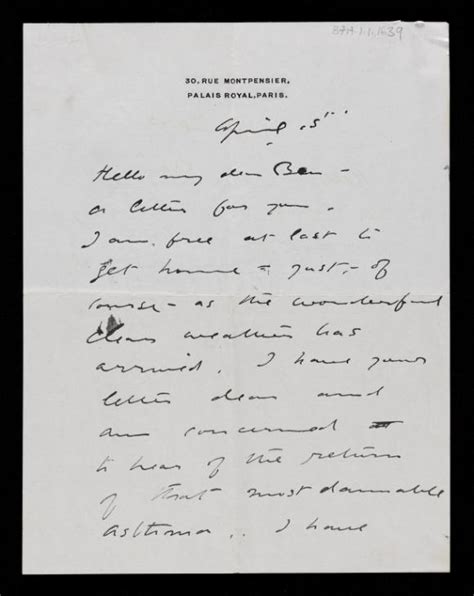 30, RUE MONTPENSIER,
PALAIS ROYAL, PARIS.
April 5th
Hello my dear Ben –
a letter for you.
I am free at last to
get home – just – of
course – as the wonderful
clean weather has
arrived. I have your
letter dear and
am concerned
to hear of the return
of that most damnable
asthma .. I have